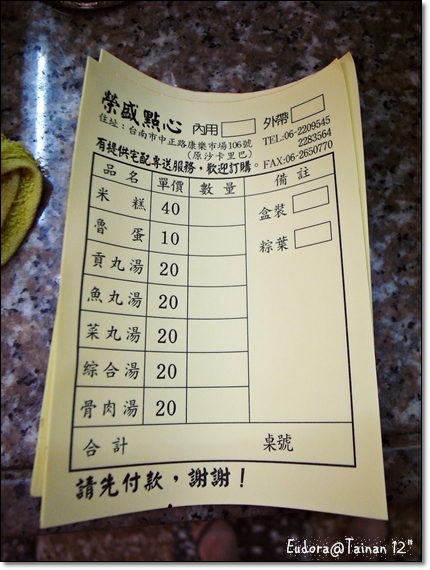 榮盛點心 內用 外帶
住址：台南市中正路康樂市場106號 TEL:06-2209545
(原沙卡里巴) 2283564
有提供宅配專送服務，歡迎訂購。FAX:06-2650770
品名 單價 數量 備註
米糕 40 盒裝
魯蛋 10 粽葉
貢丸湯 20
魚丸湯 20
菜丸湯 20
綜合湯 20
骨肉湯 20
合計 桌號
請先付款，謝謝！
Eudora@Tainan 12"